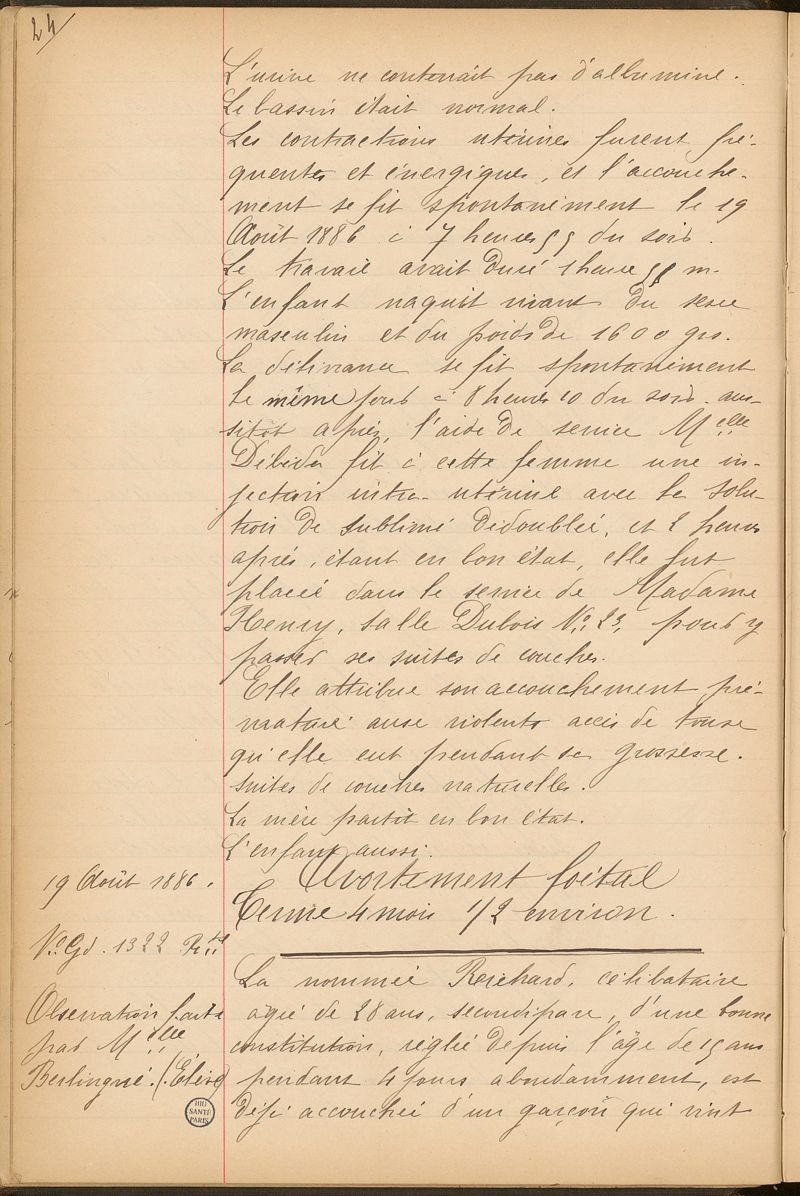 24
L'urine ne contenait pas d'albumine.
Le bassin était normal.
Les contractions utérines furent fré-
quentes et énergiques, et l'accouche-
ment se fit spontanément le 19
Août 1886 à 7 heures 55 du soir.
Le travail avait duré 1 heure 55 m.
L'enfant naquit vivant du sexe
masculin et du poids de 1600 grs.
La délivrance se fit spontanément
le même jour à 8 heures 10 du soir. aus-
sitôt après, l'aide de service Melle
fit à cette femme une in-
jection intra-utérine avec la solu-
tion de sublimé dédoublée, et 2 heures
après, étant en bon état, elle fut
placée dans le service de Madame
Henry, salle Dubois No. 23, pour y
passer ses suites de couches.
Elle attribue son accouchement pré-
maturé aux violents accès de toux
qu'elle eut pendant sa grossesse.
Suites de couches naturelles.
La mère partit en bon état.
L'enfant aussi.
19 Août 1886.
Avortement foetal
Terme 4 mois 1/2 environ.
No. Gd. 1322
La nommée Reichard, célibataire
âgée de 28 ans, secondipare, d'une bonne
constitution, réglée depuis l'âge de 15 ans
pendant 4 jours abondamment, est
déjà accouchée d'un garçon qui vint
Observation faite
par Melle
Berlingué. (Elève)
BIU
SANTÉ
PARIS